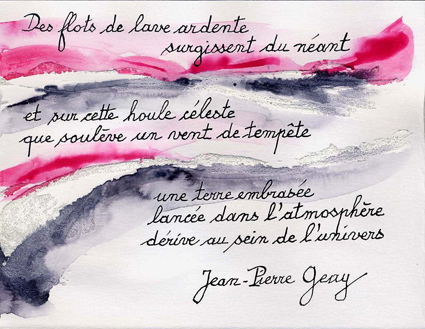 Des flots de lave ardente
surgissent du néant
et sur cette houle céleste
que soulève un vent de tempête
une terre embrasée
lancée dans l'atmosphère
dérive au sein de l'univers
Jean-Pierre Geay